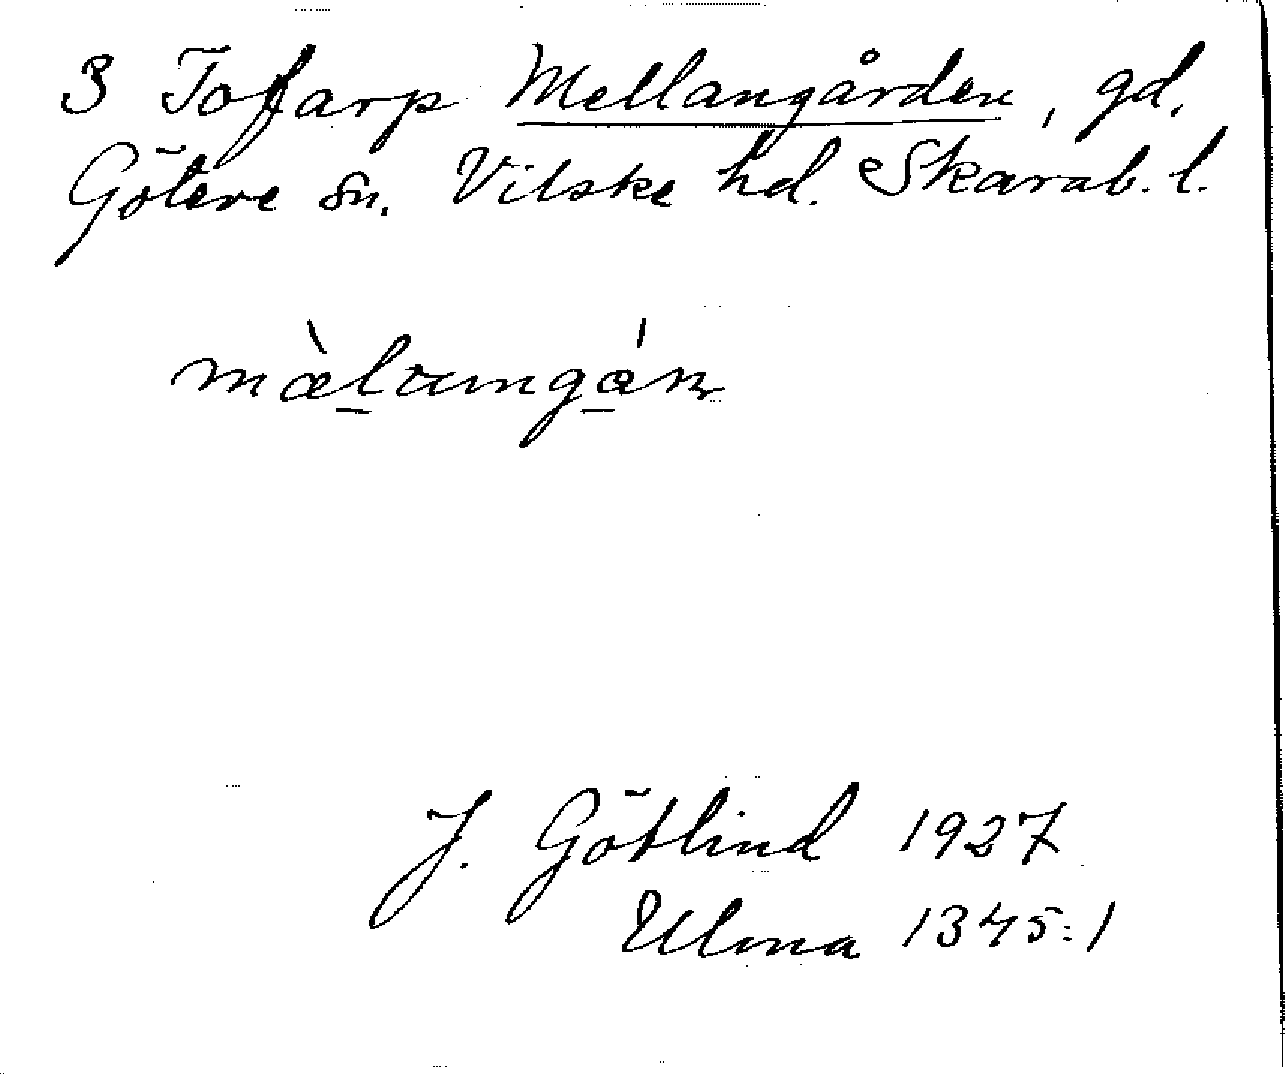 3 Tofarp Mellangården, gd.
Götene sn. Vilske hd. Skarab. l.
mæ̀lamgán
J. Götlind 1927
Ulma 1345:1